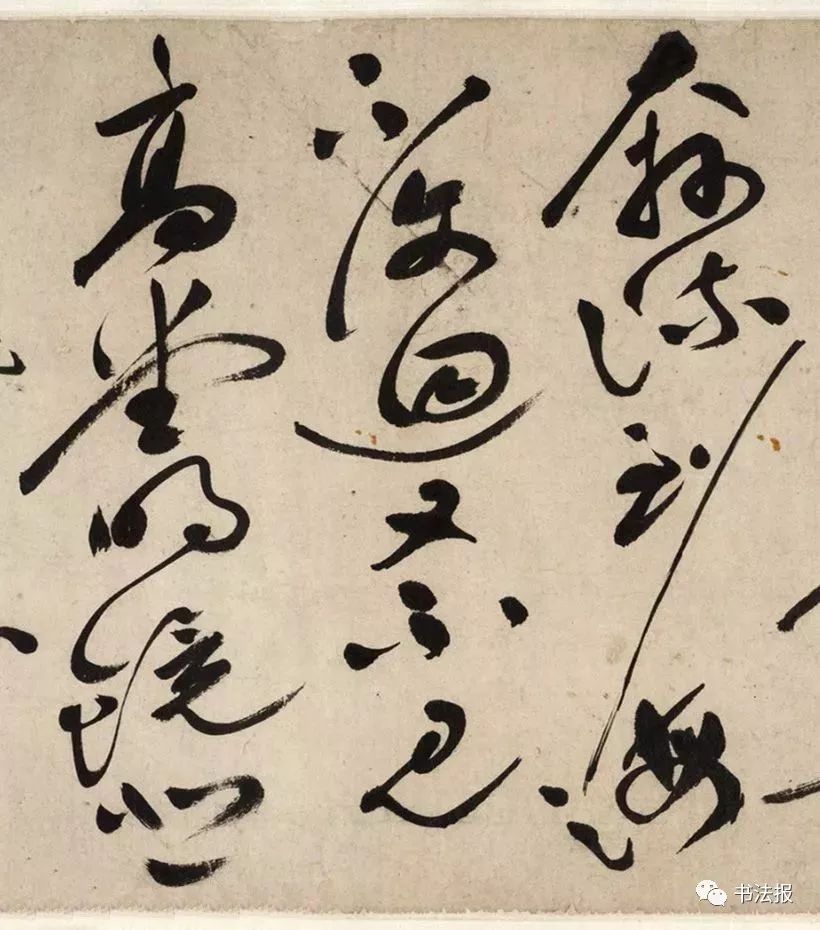 奔流到海
不復迴又不見
高堂明鏡悲
书法报